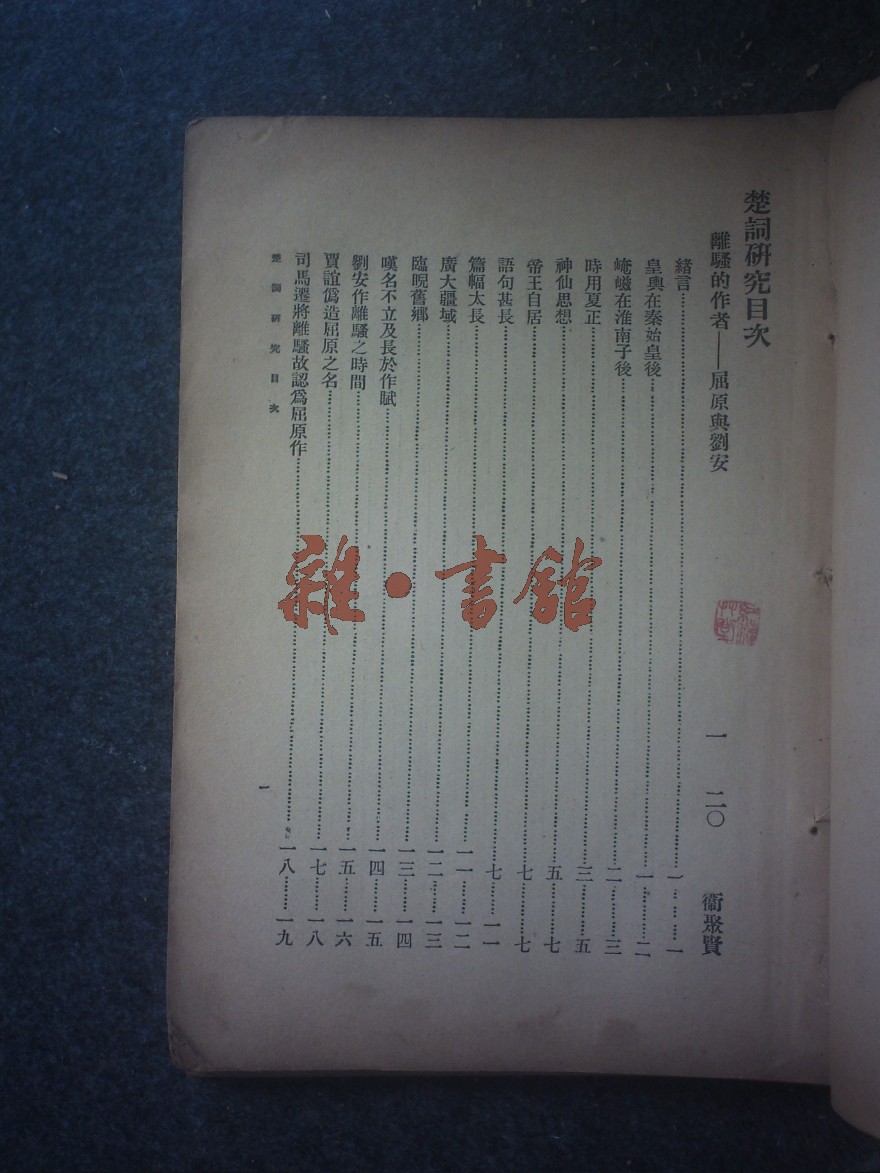 楚詞研究目次
離騷的作者——屈原與劉安 一 二〇 衞聚賢
緒言……一……一
皇輿在秦始皇後……一……二
崦嵫在淮南子後……二……三
時用夏正……三……五
神仙思想……五……七
帝王自居……七……七
語句甚長……七……一一
篇幅太長……一一……一二
廣大疆域……一二……一三
臨睨舊鄉……一三……一四
嘆名不立及長於作賦……一四……一五
劉安作離騷之時間……一五……一六
賈誼僞造屈原之名……一七……一八
司馬遷將離騷故認爲屈原作……一八……一九
楚詞研究目次
一
雜·書館